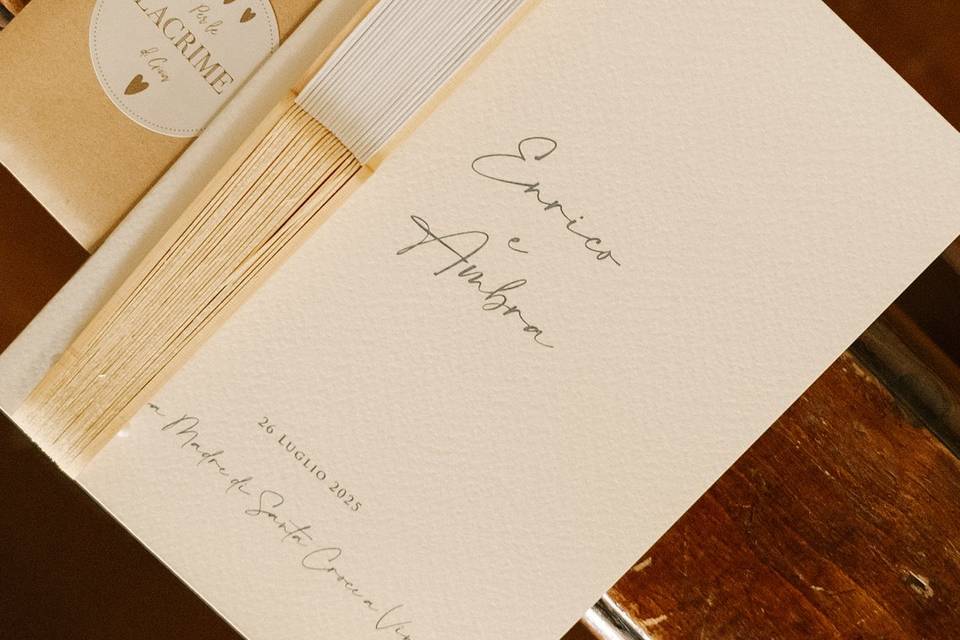 Per le
LACRIME
di Gioia
Enrico
e
Ambra
26 LUGLIO 2025
Madre di Santa Croce a